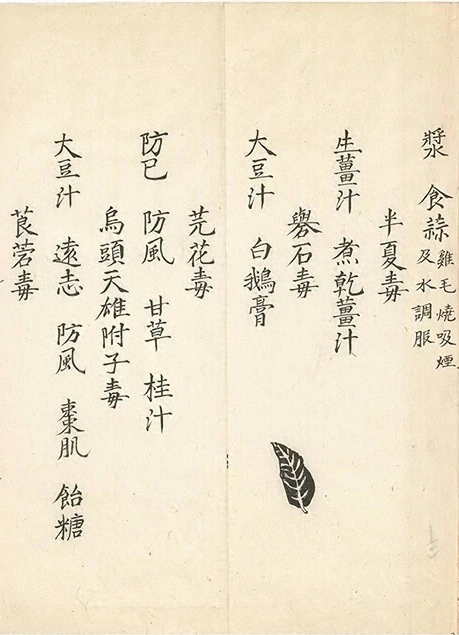 漿 食蒜 雞毛燒吸煙
及水調服
半夏毒
生薑汁 煮乾薑汁
礜石毒
大豆汁 白鵝膏
芫花毒
防已 防風 甘草 桂汁
烏頭天雄附子毒
大豆汁 遠志 防風 棗肌 飴糖
莨菪毒